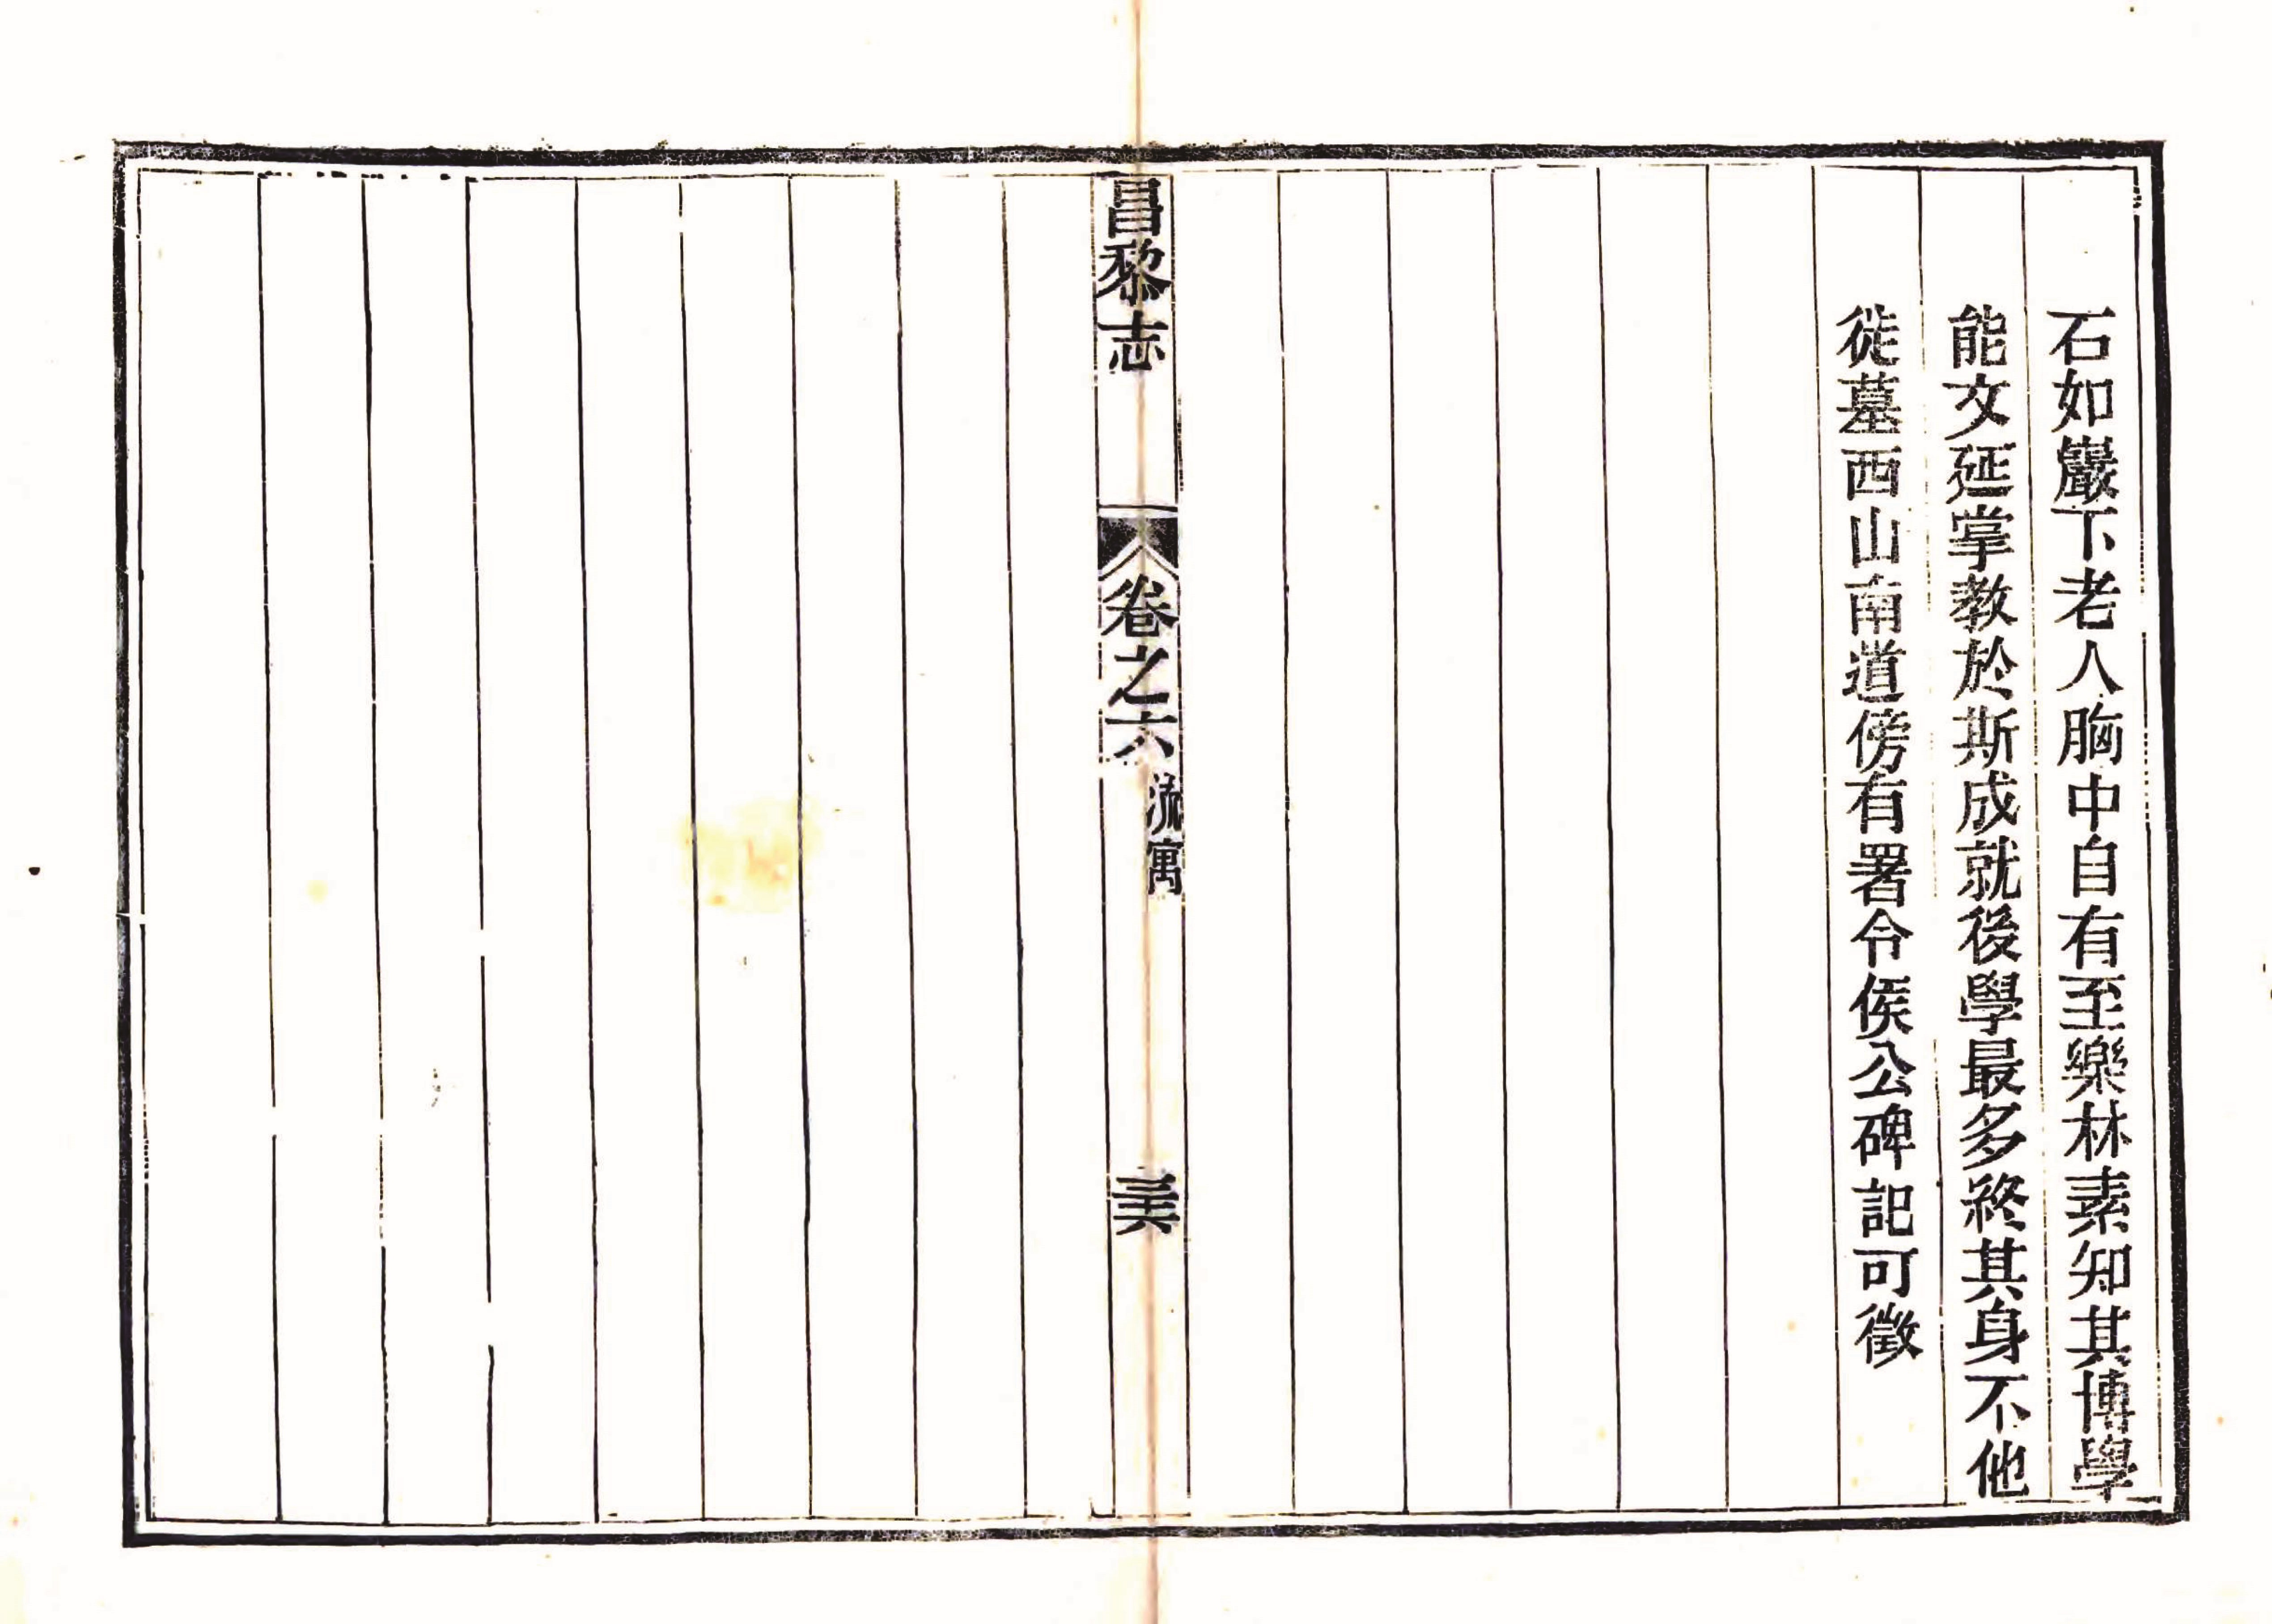 石如巖下老人胸中自有至樂林素知其博學
能文延掌教於斯成就後學最多終其身不他
徙墓西山南道傍有署令侯公碑記可徵
昌黎志
卷之六
流寓